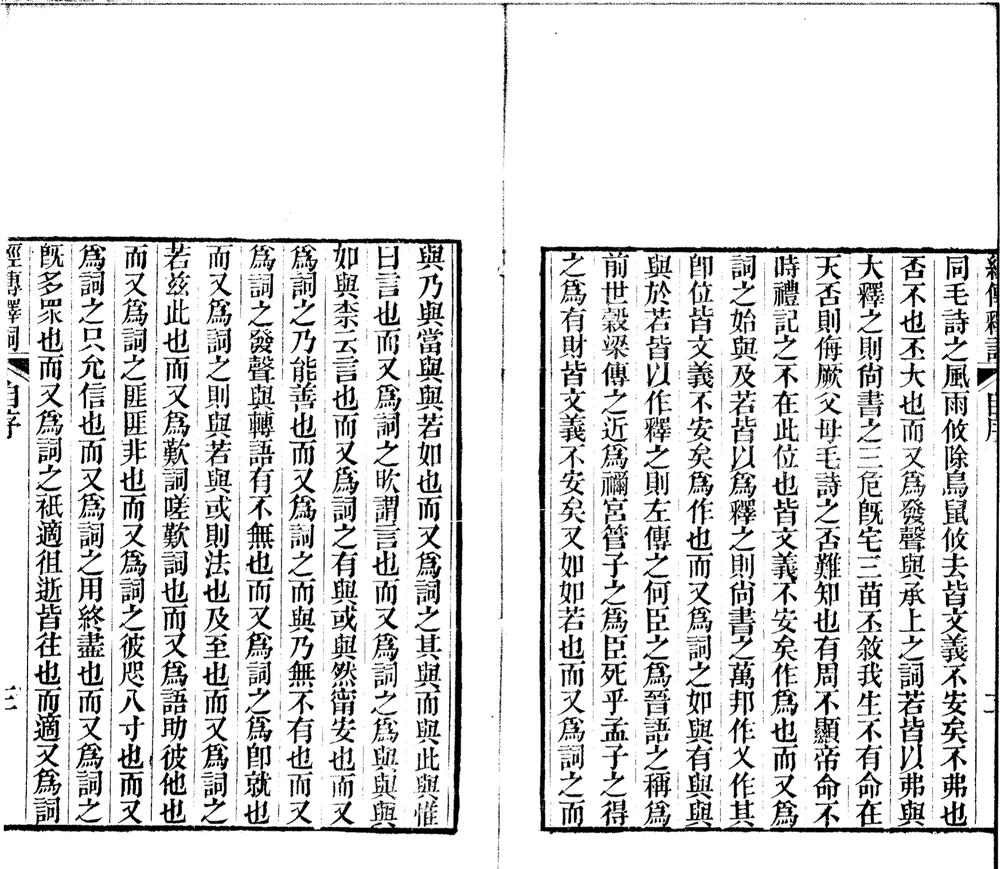 經傳釋詞 自序 二
同毛詩之風雨攸除鳥鼠攸去皆文義不安矣不弗也
否不也丕大也而又爲發聲與承上之詞若皆以弗與
大釋之則尙書之三危旣宅三苗丕敘我生不有命在
天否則侮厥父母毛詩之否難知也有周不顯帝命不
時禮記之不在此位也皆文義不安矣作爲也而又爲
詞之始與及若皆以爲釋之則尙書之萬邦作乂作其
卽位皆文義不安矣爲作也而又爲詞之如與有與與
與於若皆以作釋之則左傳之何臣之爲晉語之稱爲
前世穀梁傳之近爲禰宮管子之爲臣死乎孟子之得
之爲有財皆文義不安矣又如如若也而又爲詞之而
與乃與當與與若如也而又爲詞之其與而與此與惟
曰言也而又爲詞之欥謂言也而又爲詞之爲與與與
如與柰云言也而又爲詞之有與或與然甯安也而又
爲詞之乃能善也而又爲詞之而與乃無不有也而又
爲詞之發聲與轉語有不無也而又爲詞之爲卽就也
而又爲詞之則與若與或則法也及至也而又爲詞之
若兹此也而又爲歎詞嗟歎詞也而又爲語助彼他也
而又爲詞之匪匪非也而又爲詞之彼咫八寸也而又
爲詞之只允信也而又爲詞之用終盡也而又爲詞之
旣多眾也而又爲詞之祇適徂逝皆往也而適又爲詞
經傳釋詞 自序 三